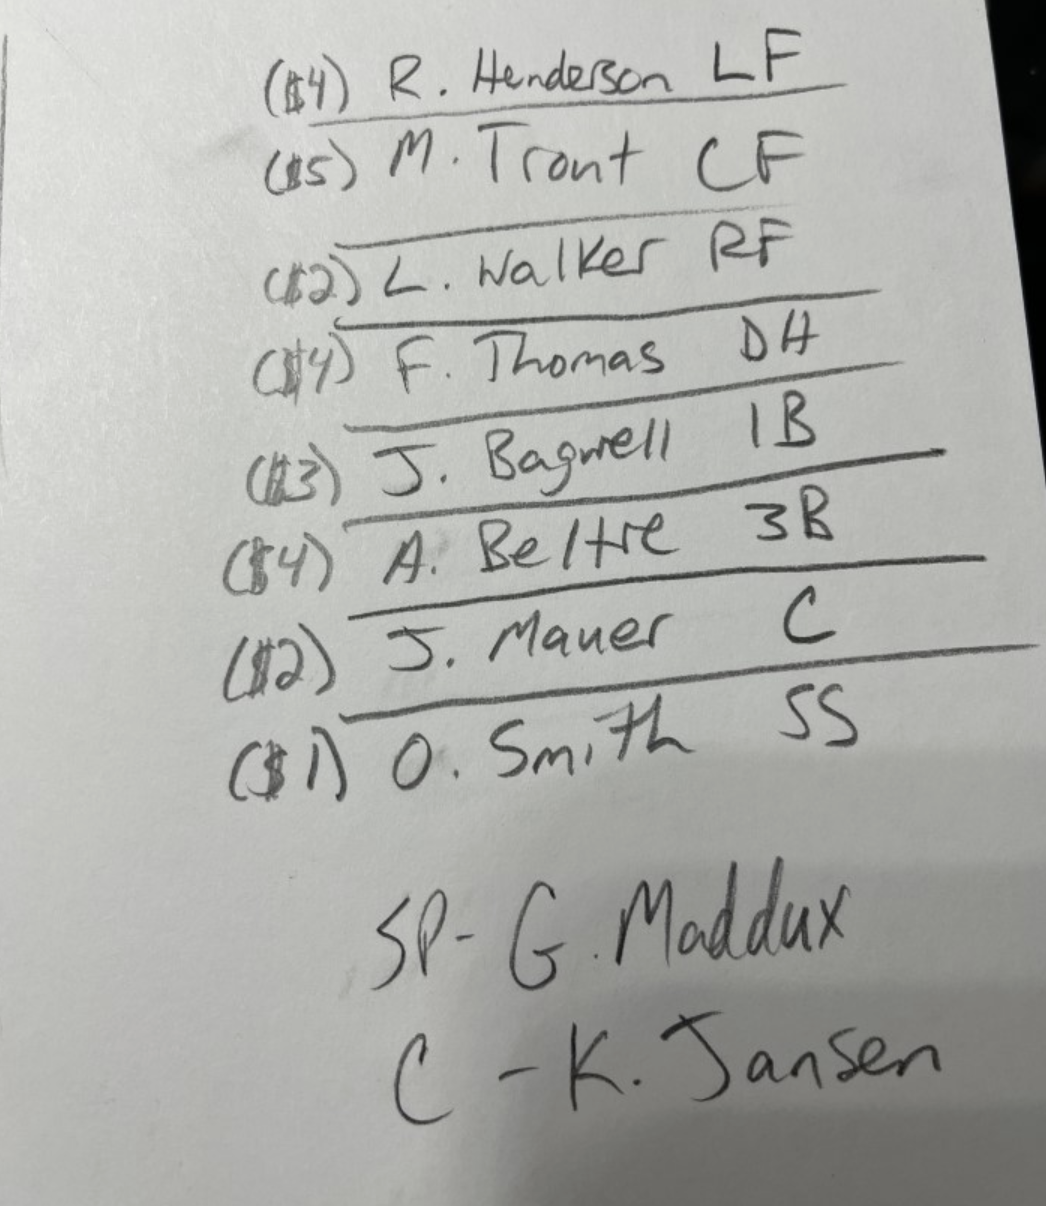 ($4) R. Henderson LF
($5) M. Trout CF
($2) L. Walker RF
($4) F. Thomas DH
($3) J. Bagwell 1B
($4) A. Beltre 3B
($2) J. Mauer C
($1) O. Smith SS
SP- G. Maddux
C - K. Jansen